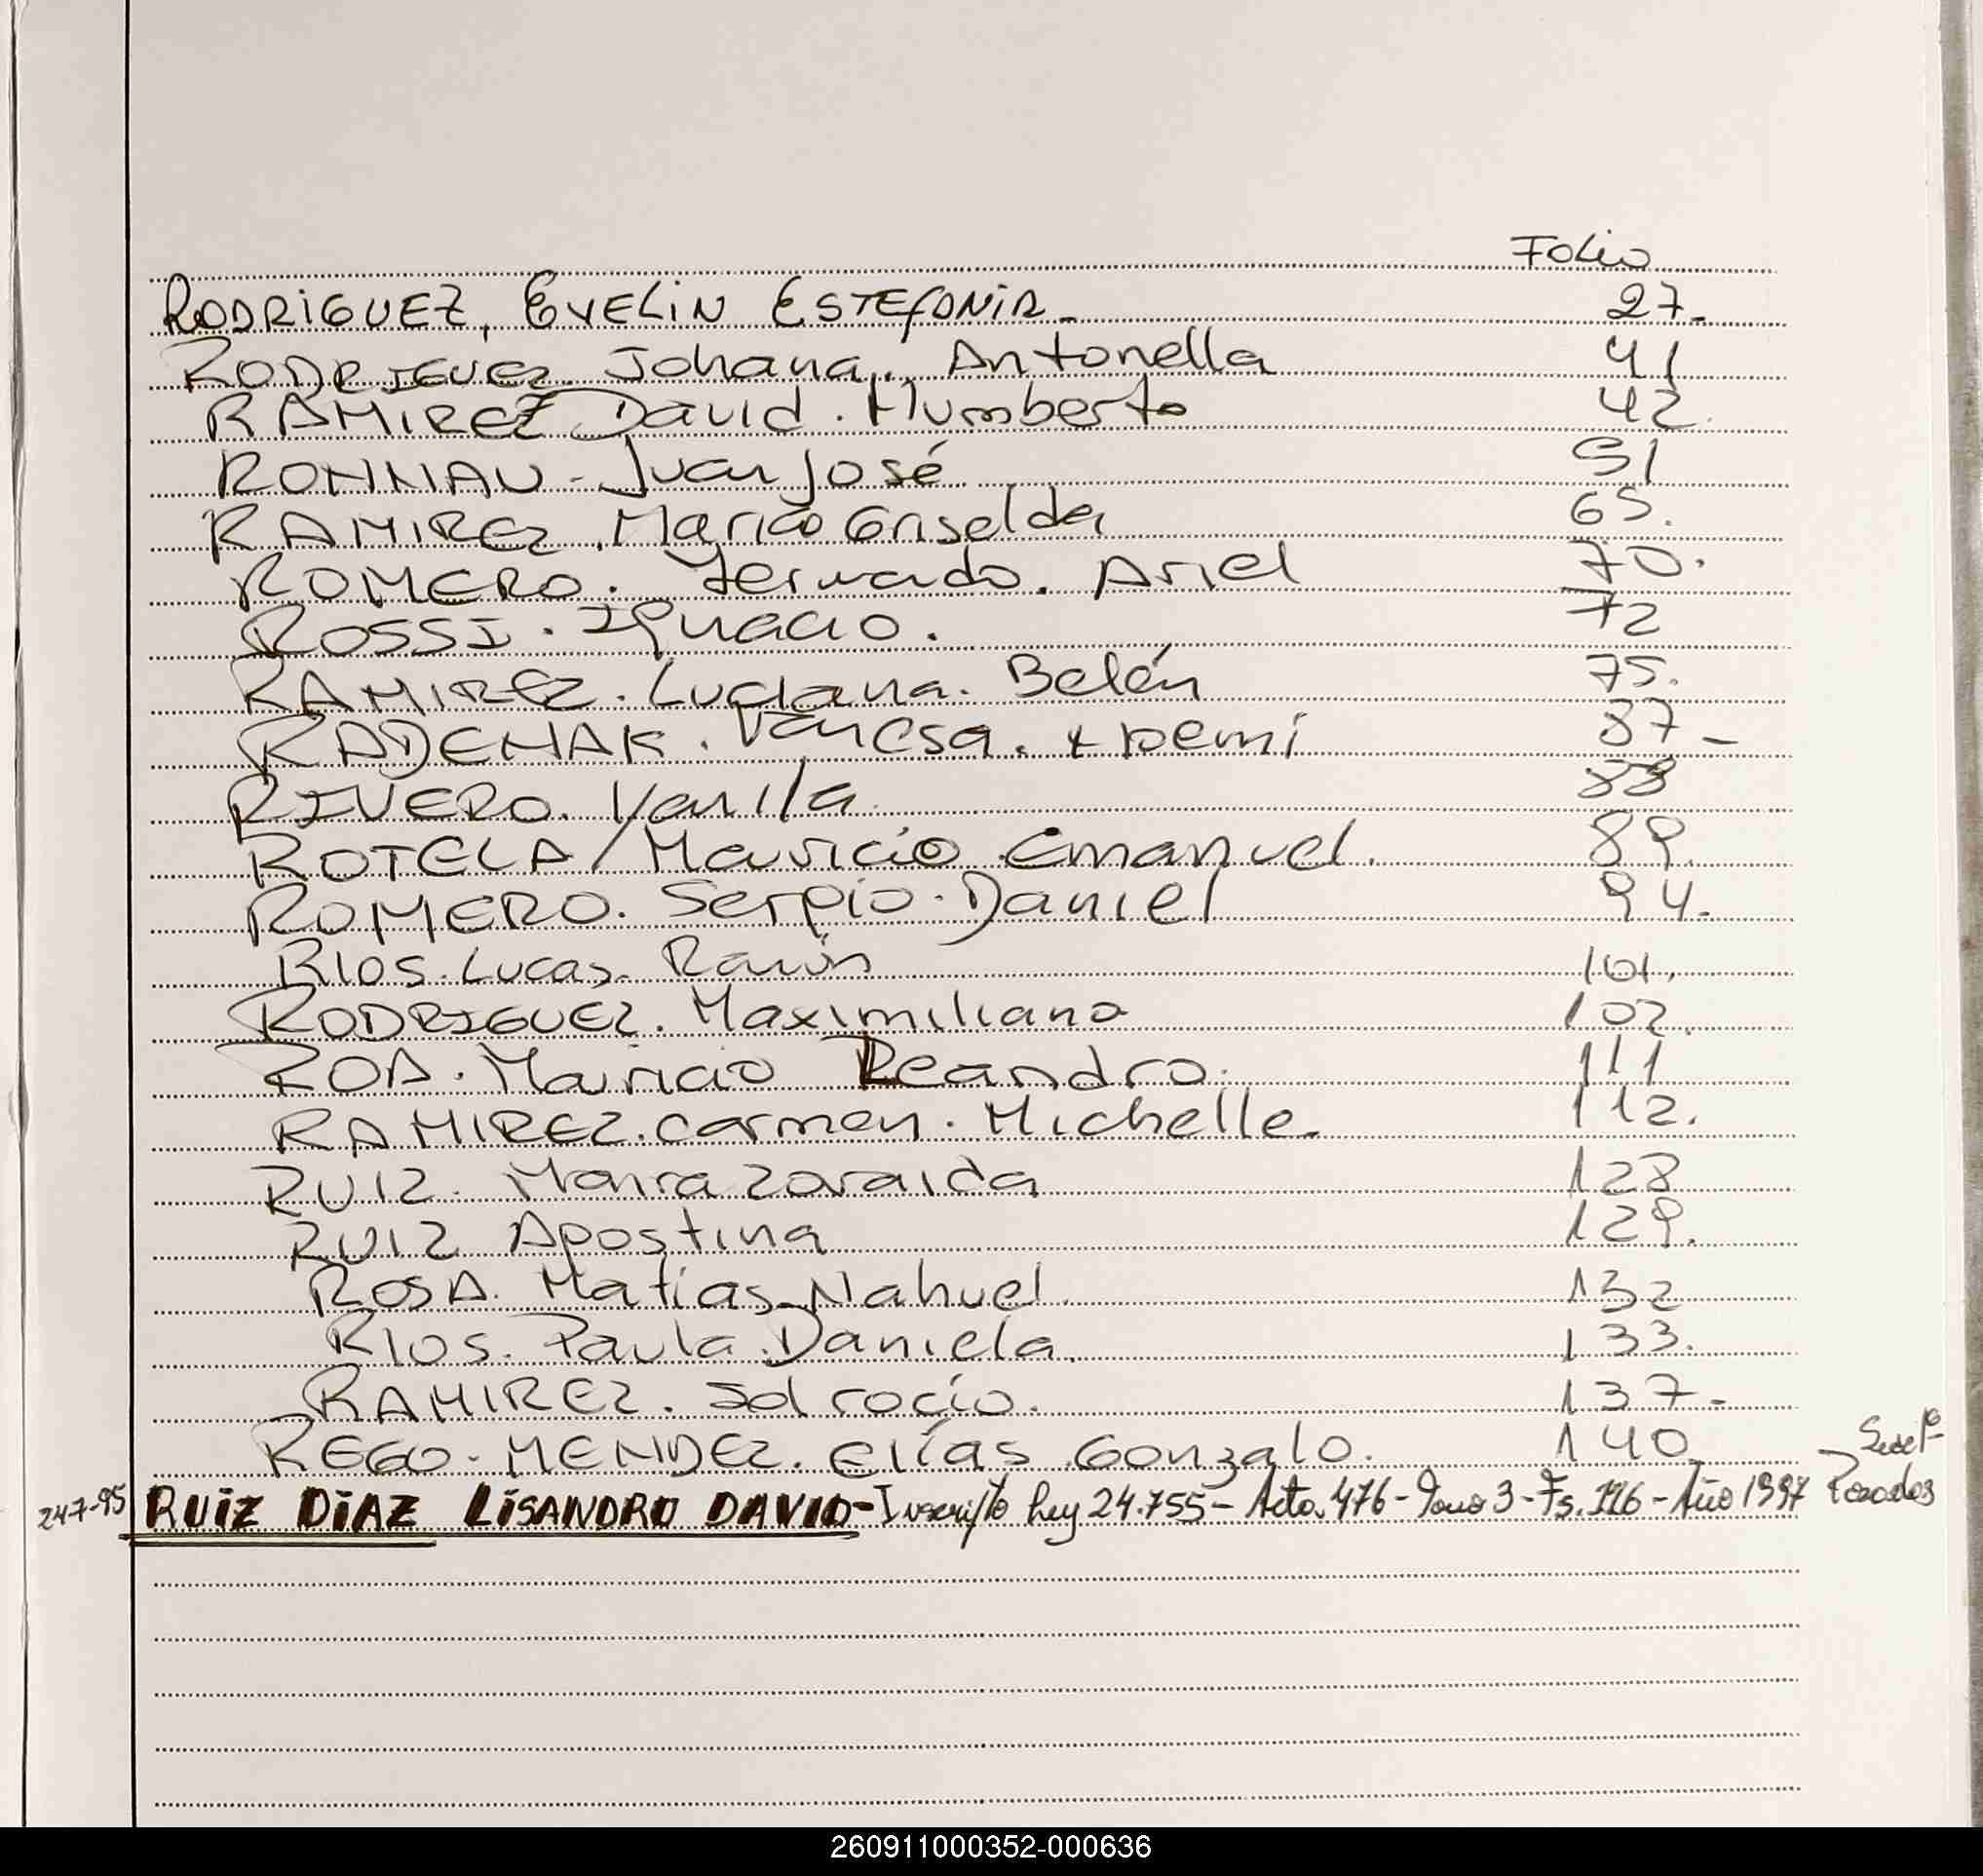 Folio
RODRIGUEZ, EVELIN ESTEFANIA - 27-
RODRIGUEZ Johana. Antonella 41
RAMIREZ David. Humberto 42.
RONNAU - Juan José 51
RAMIREZ Maria Griselda 65.
ROMERO. Fernando. Ariel 70.
ROSSI. Ignacio. 72
RAMIREZ. Luciana. Belén 75.
RADEMAK. Vanesa. Noemi 87-
RIVERO. Yanila 88
ROTELA / Mauricio Emanuel. 89.
ROMERO. Sergio. Daniel 94.
RIOS. Lucas. Ramón 101.
RODRIGUEZ. Maximiliano 102.
ROA. Mauricio Leandro. 111
RAMIREZ. Carmen. Michelle. 112.
RUIZ. Maira Zoraida 128
RUIZ Agostina 129.
ROSA. Matías Nahuel. 132
RIOS. Paula Daniela. 133.
RAMIREZ. Sol rocío. 137-
REGO - MENDEZ. Elías Gonzalo. 140
24-7-95 RUIZ DIAZ LISANDRO DAVID - Inscripto Ley 24.755 - Acta 476 - Tomo 3 - Fs. 126 - Año 1997
Posadas
260911000352-000636